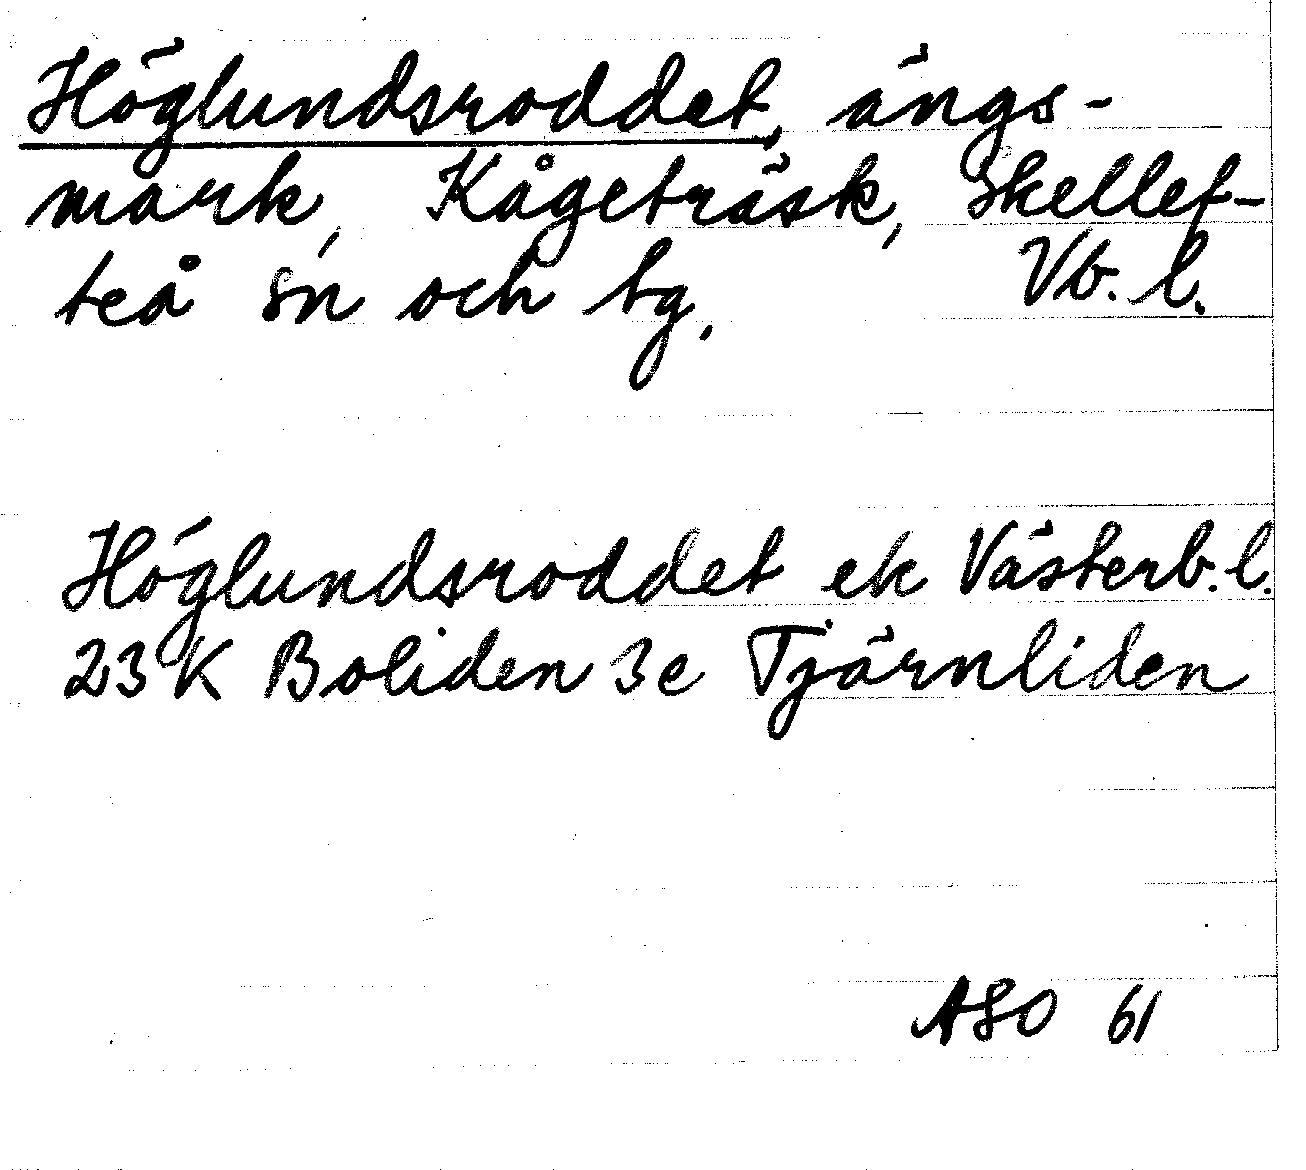 Höglundsroddet, ängs-
mark, Kågeträsk, Skellef-
teå sn och tg. Vb. l.
Höglundsroddet ek Västerb. l.
23 K Boliden 3e Tjärnliden
ASO 61